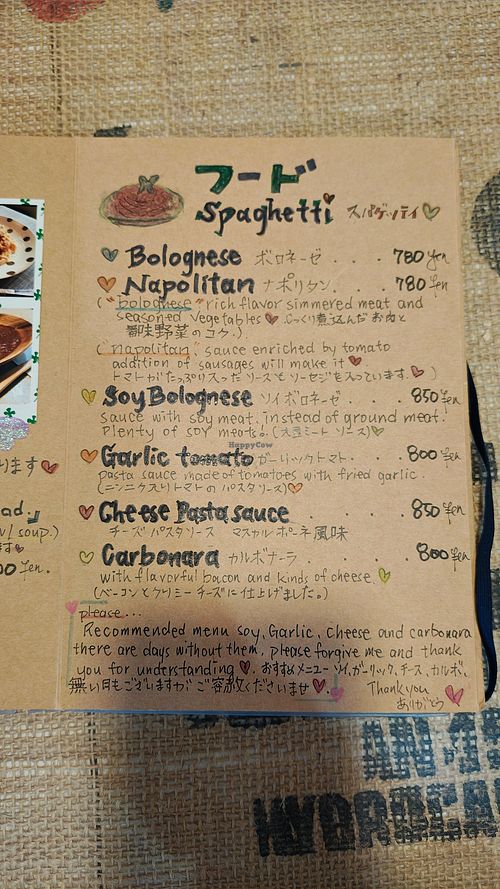 フード
Spaghetti スパゲッティ
Bolognese ボロネーゼ . . . . 780 yen
Napolitan ナポリタン . . . . 780 yen
("bolognese" rich flavor simmered meat and
seasoned vegetables じっくり煮込んだお肉と
香味野菜のコク.)
("napolitan" sauce enriched by tomato
addition of sausages will make it
トマトがたっぷり入ったソースとソーセージを入っています。)
Soy Bolognese ソイボロネーゼ . . . 850 yen
sauce with soy meat. instead of ground meat!
Plenty of soy meats! (大豆ミートソース)
HappyCow
Garlic tomato ガーリックトマト . . . 800 yen
pasta sauce made of tomatoes with fried garlic.
(ニンニク入りトマトのパスタソース)
Cheese Pasta sauce . . . . 850 yen
チーズパスタソース マスカルポーネ風味
Carbonara カルボナーラ . . . . 800 yen
with flavorful bacon and kinds of cheese.
(ベーコンとクリミーチーズに仕上げました。)
please...
Recommended menu soy, Garlic, Cheese and carbonara
there are days without them, please forgive me and thank
you for understanding. おすすめメニューソイ、ガーリック、チーズ、カルボ、
無い日もございますがご容赦くださいませ Thank you
ありがとう
ります
ad.」
w/ soup.)
00 yen.